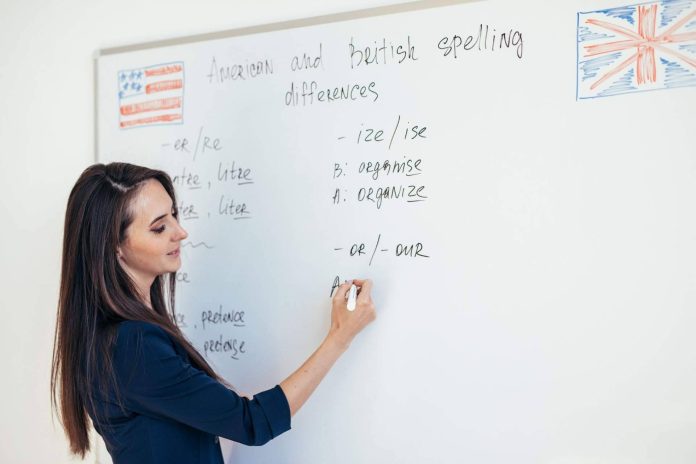 American and British spelling
differences
-er/re
litre
liter
pretence
pretense
- ize/ise
B: organise
A: organize
- or/-our
A: